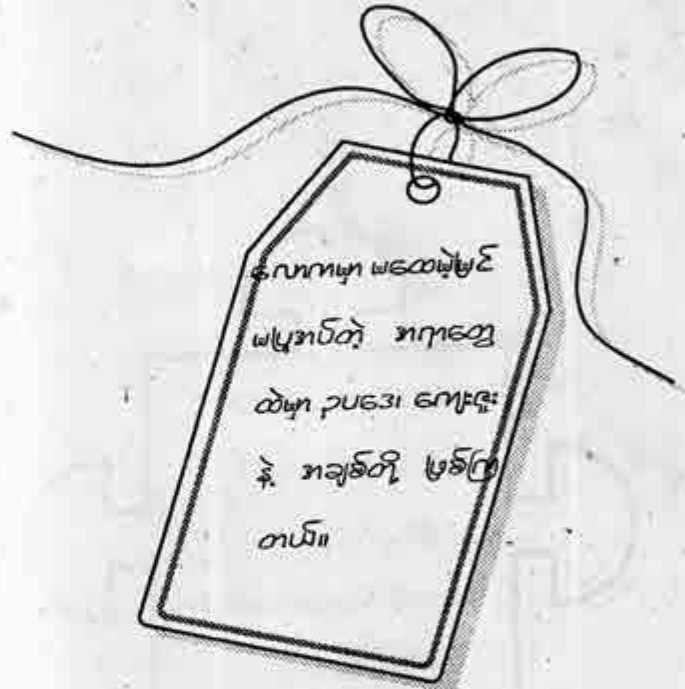 လောကမှာ မထေမဲ့မြင်
မပြုအပ်တဲ့ အရာတွေ
ထဲမှာ ဥပဒေ၊ ကျေးဇူး
နဲ့ အချစ်တို့ ဖြစ်ကြ
တယ်။